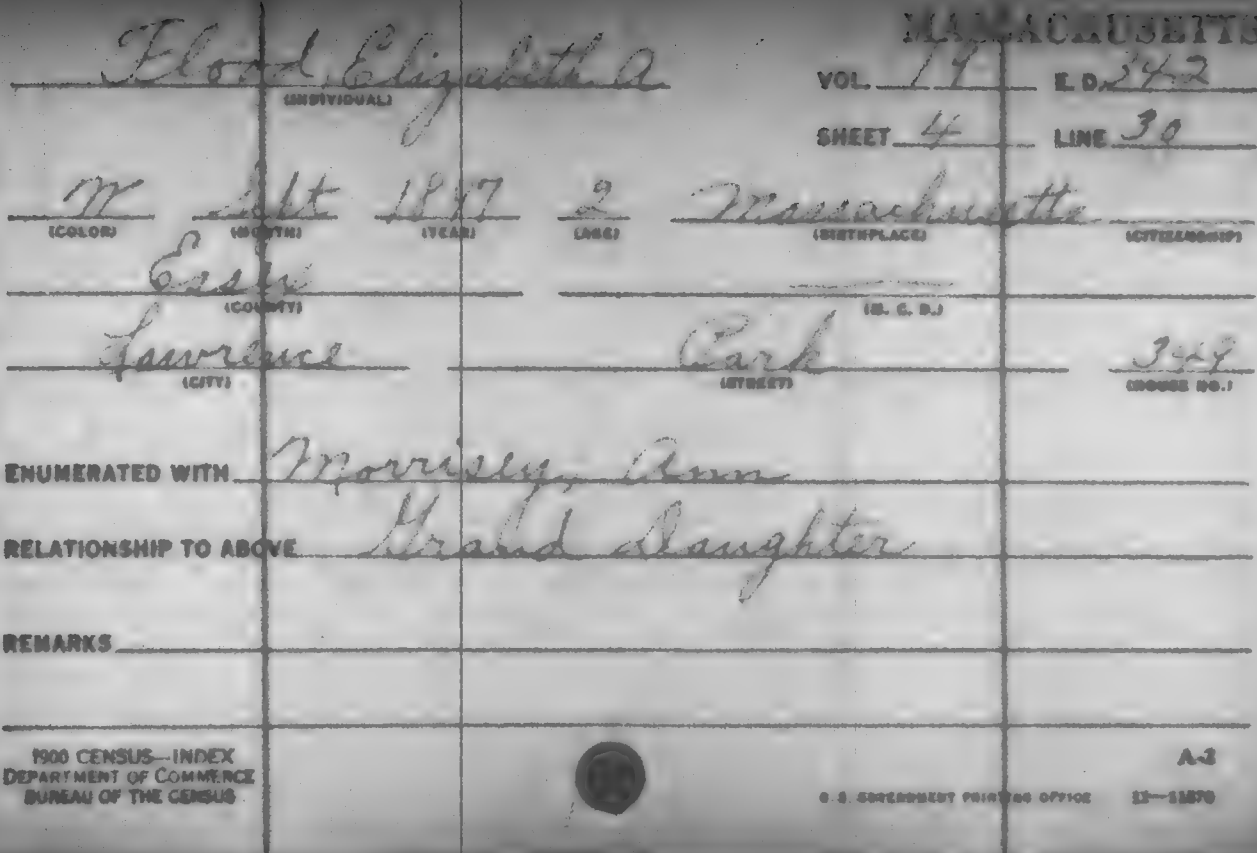 MASSACHUSETTS
Flood, Elizabeth A
(INDIVIDUAL)
VOL. 19 E. D. 342
SHEET 4 LINE 30
W Sept 1897 2 Massachusetts
(COLOR) (MONTH) (YEAR) (AGE) (BIRTHPLACE) (CITIZENSHIP)
Essex
(COUNTY) (M. C. D.)
Lawrence Park 349
(CITY) (STREET) (HOUSE NO.)
ENUMERATED WITH Morrisey, Ann
RELATIONSHIP TO ABOVE Grand Daughter
REMARKS
1900 CENSUS—INDEX
DEPARTMENT OF COMMERCE
BUREAU OF THE CENSUS
A-2
U. S. GOVERNMENT PRINTING OFFICE